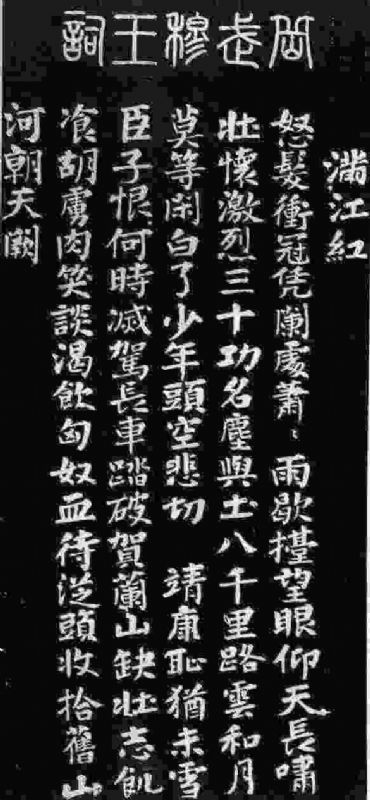 岳武穆王詞
滿江紅
怒髮衝冠凭闌處蕭〻雨歇擡望眼仰天長嘯
壯懷激烈三十功名塵與土八千里路雲和月
莫等閑白了少年頭空悲切　靖康恥猶未雪
臣子恨何時滅駕長車踏破賀蘭山缺壯志飢
飡胡虜肉笑談渴飲匈奴血待從頭收拾舊山
河朝天闕